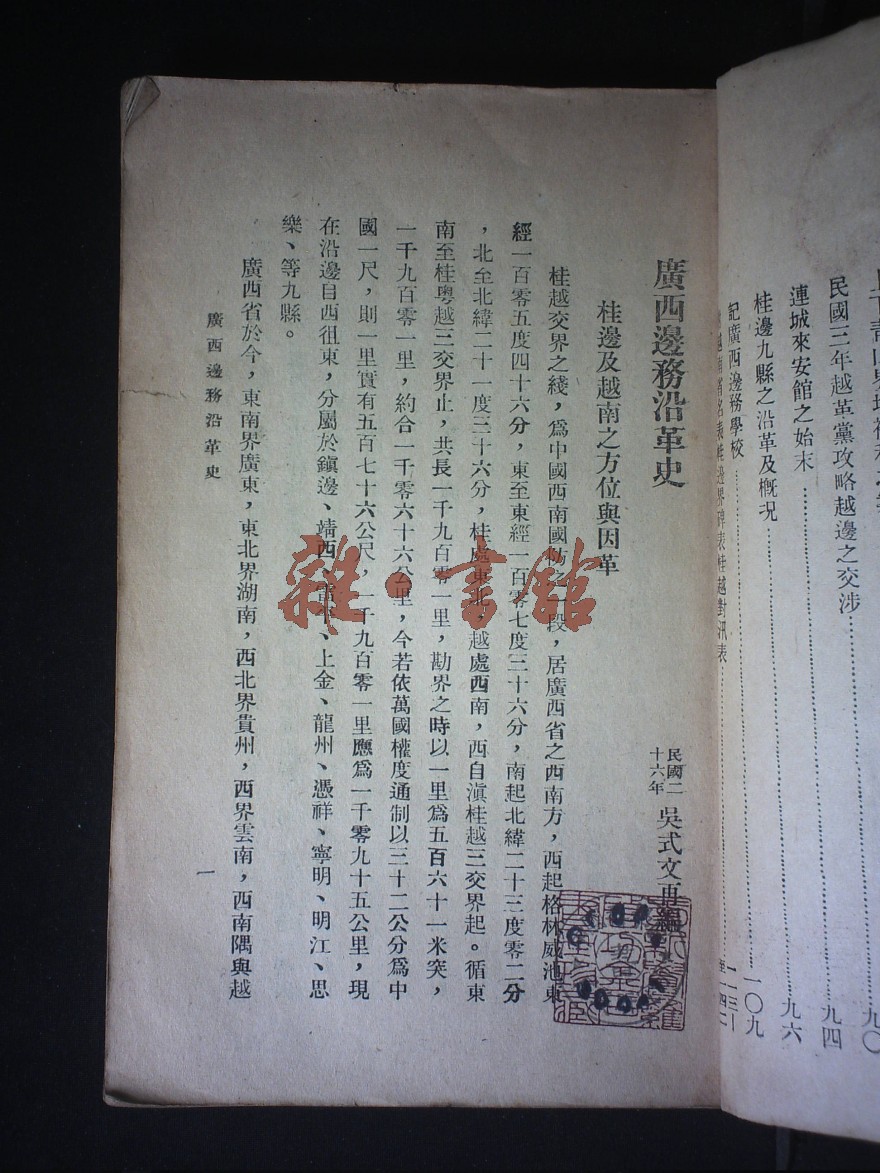 民國三年越革黨攻略越邊之交涉……九四
連城來安館之始末……九六
桂邊九縣之沿革及概況……一〇九
記廣西邊務學校……
廣西邊務沿革史
民國二十六年 吳式文再
桂邊及越南之方位與因革
桂越交界之綫，爲中國西南國防一段，居廣西省之西南方，西起格林威池東
經一百零五度四十六分，東至東經一百零七度三十六分，南起北緯二十三度零二分
，北至北緯二十一度三十六分，桂處東北，越處西南，西自滇桂越三交界起。循東
南至桂粵越三交界止，共長一千九百零一里，勘界之時以一里爲五百六十一米突，
一千九百零一里，約合一千零六十六公里，今若依萬國權度通制以三十二公分爲中
國一尺，則一里實有五百七十六公尺，一千九百零一里應爲一千零九十五公里，現
在沿邊自西徂東，分屬於鎭邊、靖西、雷平、上金、龍州、憑祥、寧明、明江、思
樂、等九縣。
廣西省於今，東南界廣東，東北界湖南，西北界貴州，西界雲南，西南隅與越
廣西邊務沿革史
一
雜·書館